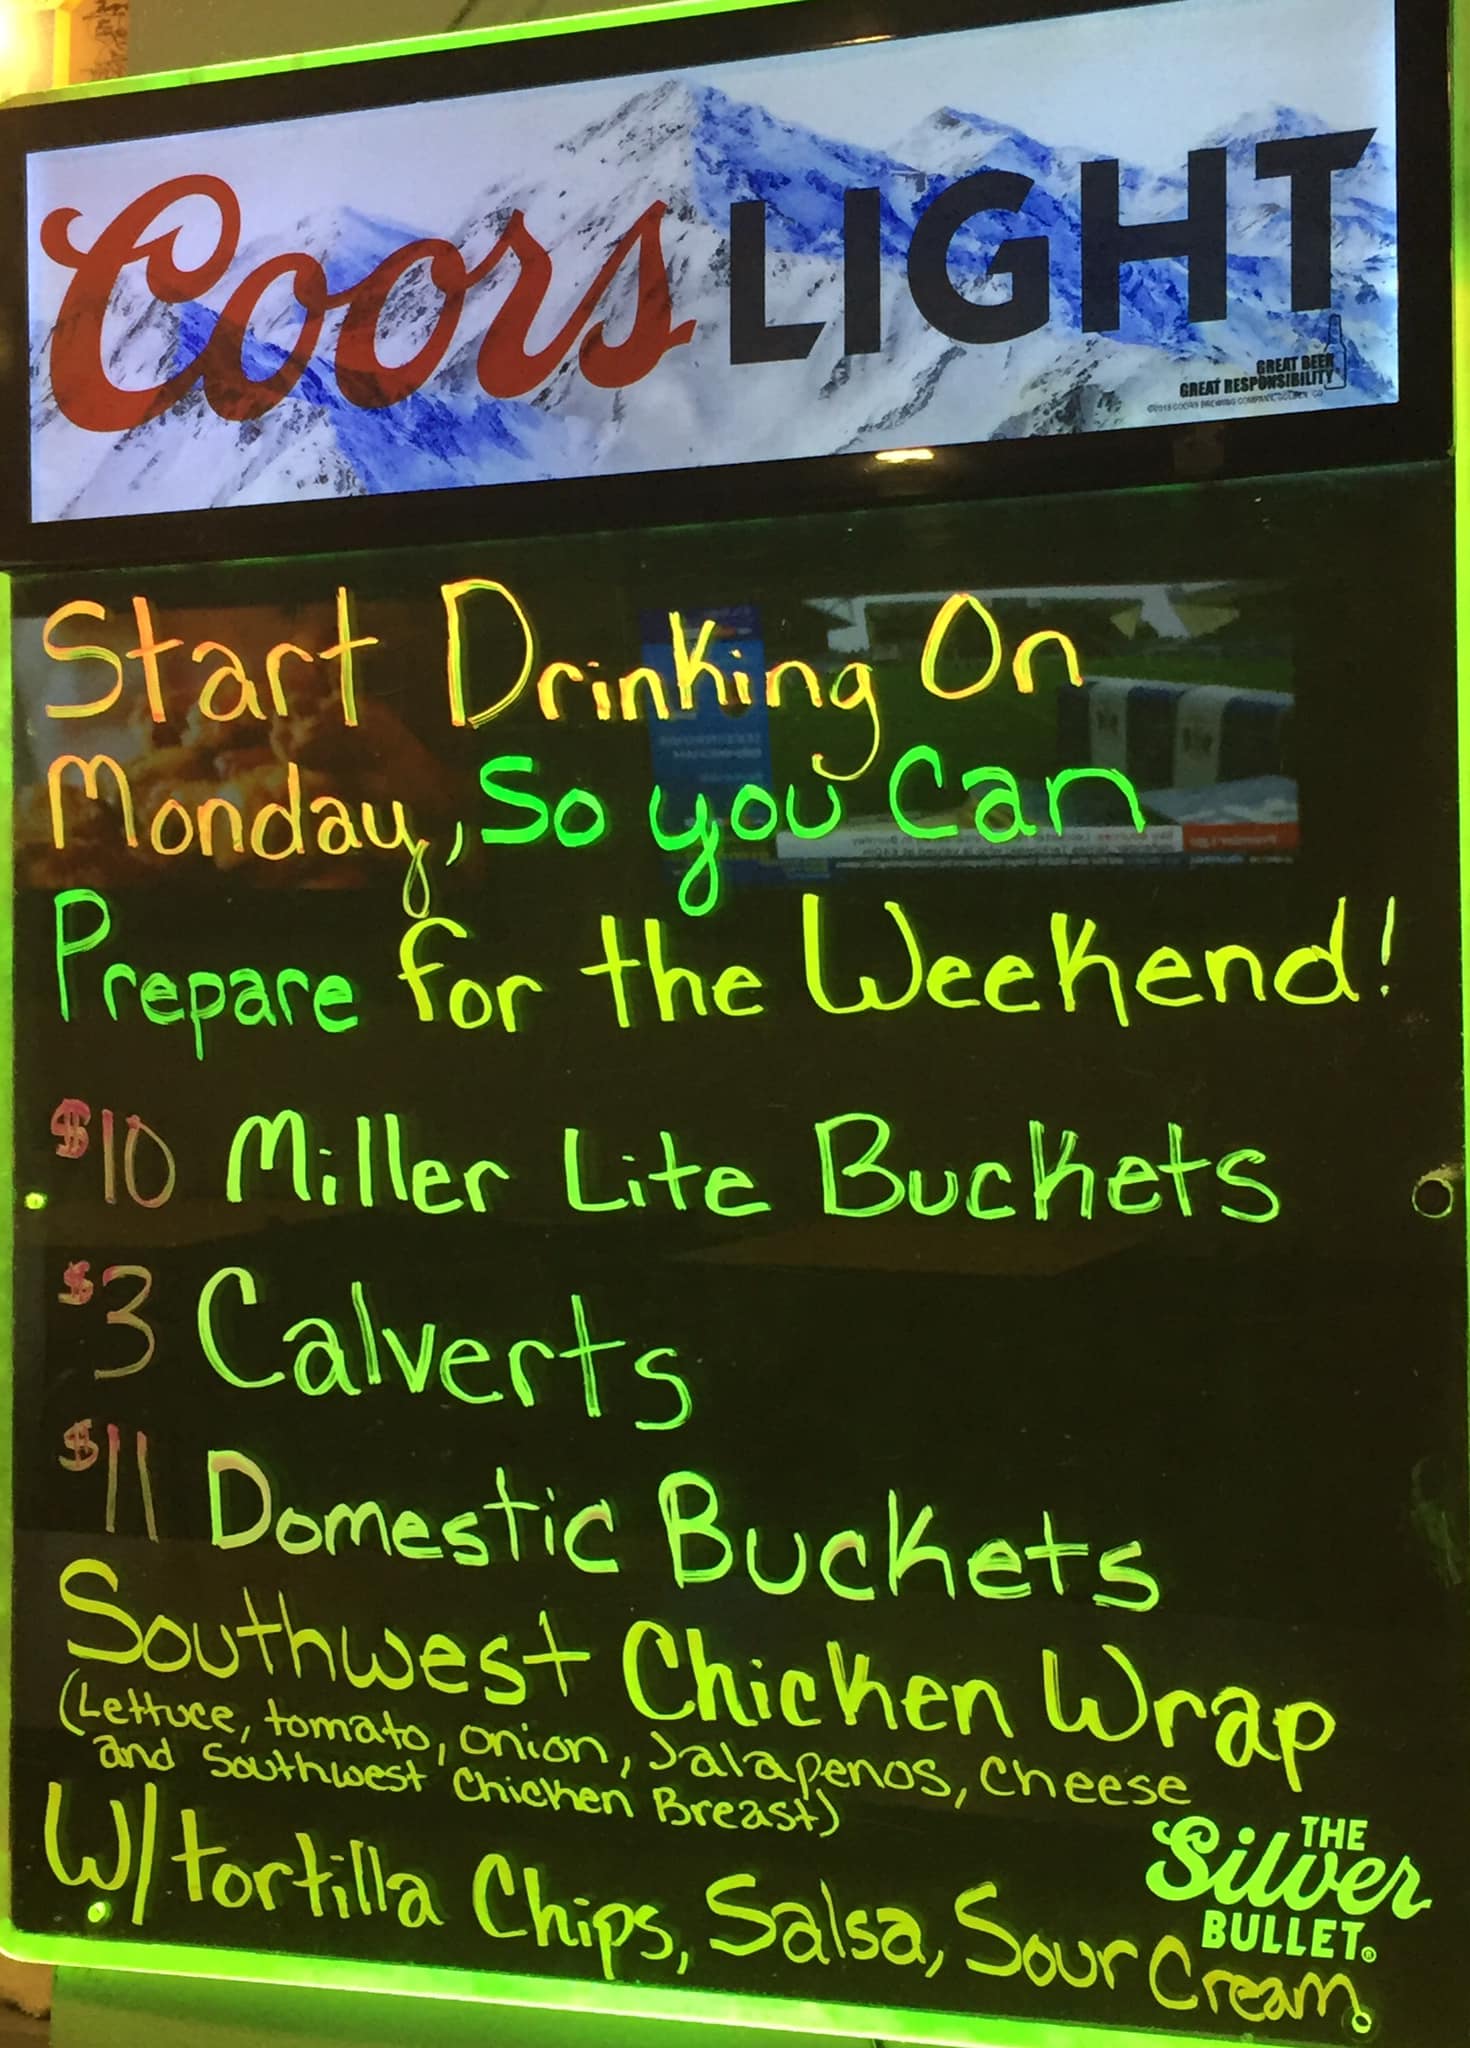 Coors LIGHT
GREAT BEER
GREAT RESPONSIBILITY
Start Drinking On
Monday, So you Can
Prepare for the Weekend!
$10 Miller Lite Buckets
$3 Calverts
$11 Domestic Buckets
Southwest Chicken Wrap
(Lettuce, tomato, onion, Jalapenos, cheese
and Southwest Chicken Breast)
W/tortilla Chips, Salsa, Sour Cream
THE
Silver
BULLET®